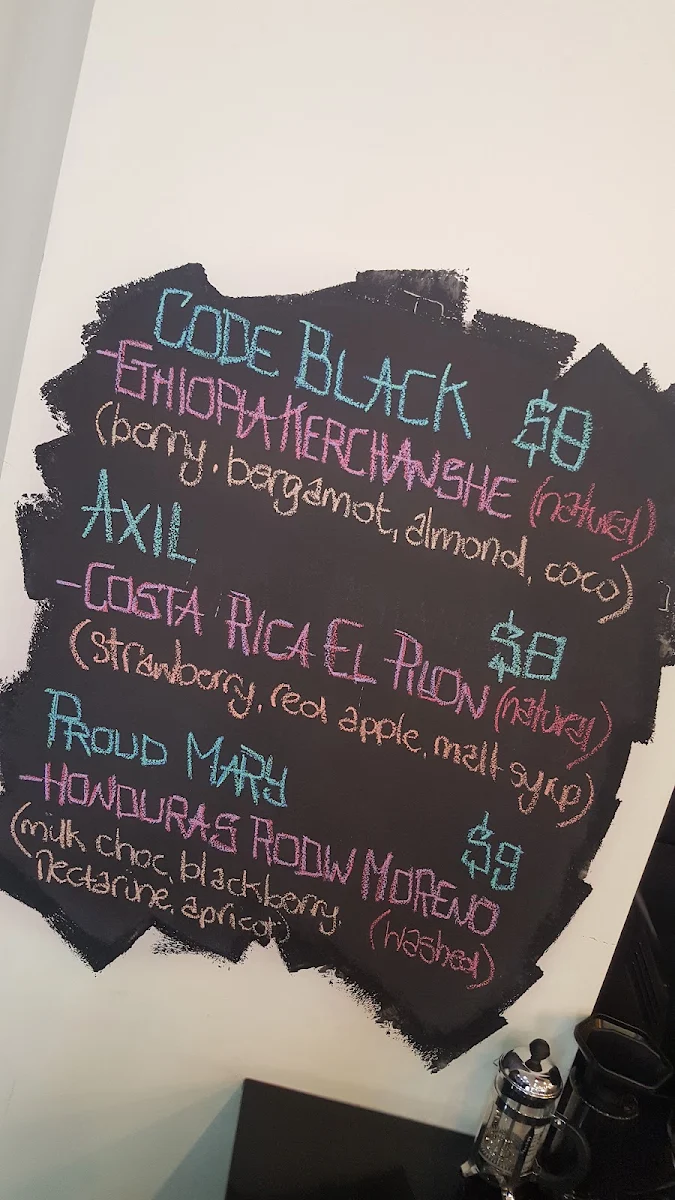 CODE BLACK $8
-ETHIOPIA KERCHANSHE (natural)
(berry, bergamot, almond, coco)
AXIL
-COSTA RICA EL PILON $8
(natural)
(strawberry, red apple, malt syrup)
PROUD MARY
-HONDURAS RODIN MORENO $9
(milk choc, blackberry,
nectarine, apricot) (washed)